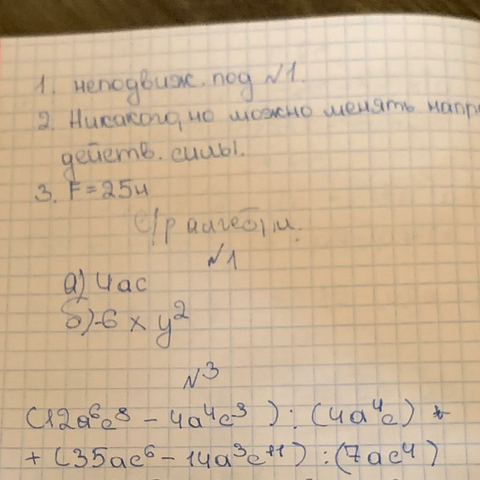 1. неподвиж. под №1.
2. Никакого, но можно менять напр
действ. силы.
3. F = 25н
С/р алгебр
№1
а) 4ас
б) -6 х у²
№3
(12a⁶c⁸ - 4a⁴c³) : (4a⁴c) +
+ (35ac⁶ - 14a³c⁺¹¹) : (7ac⁴)